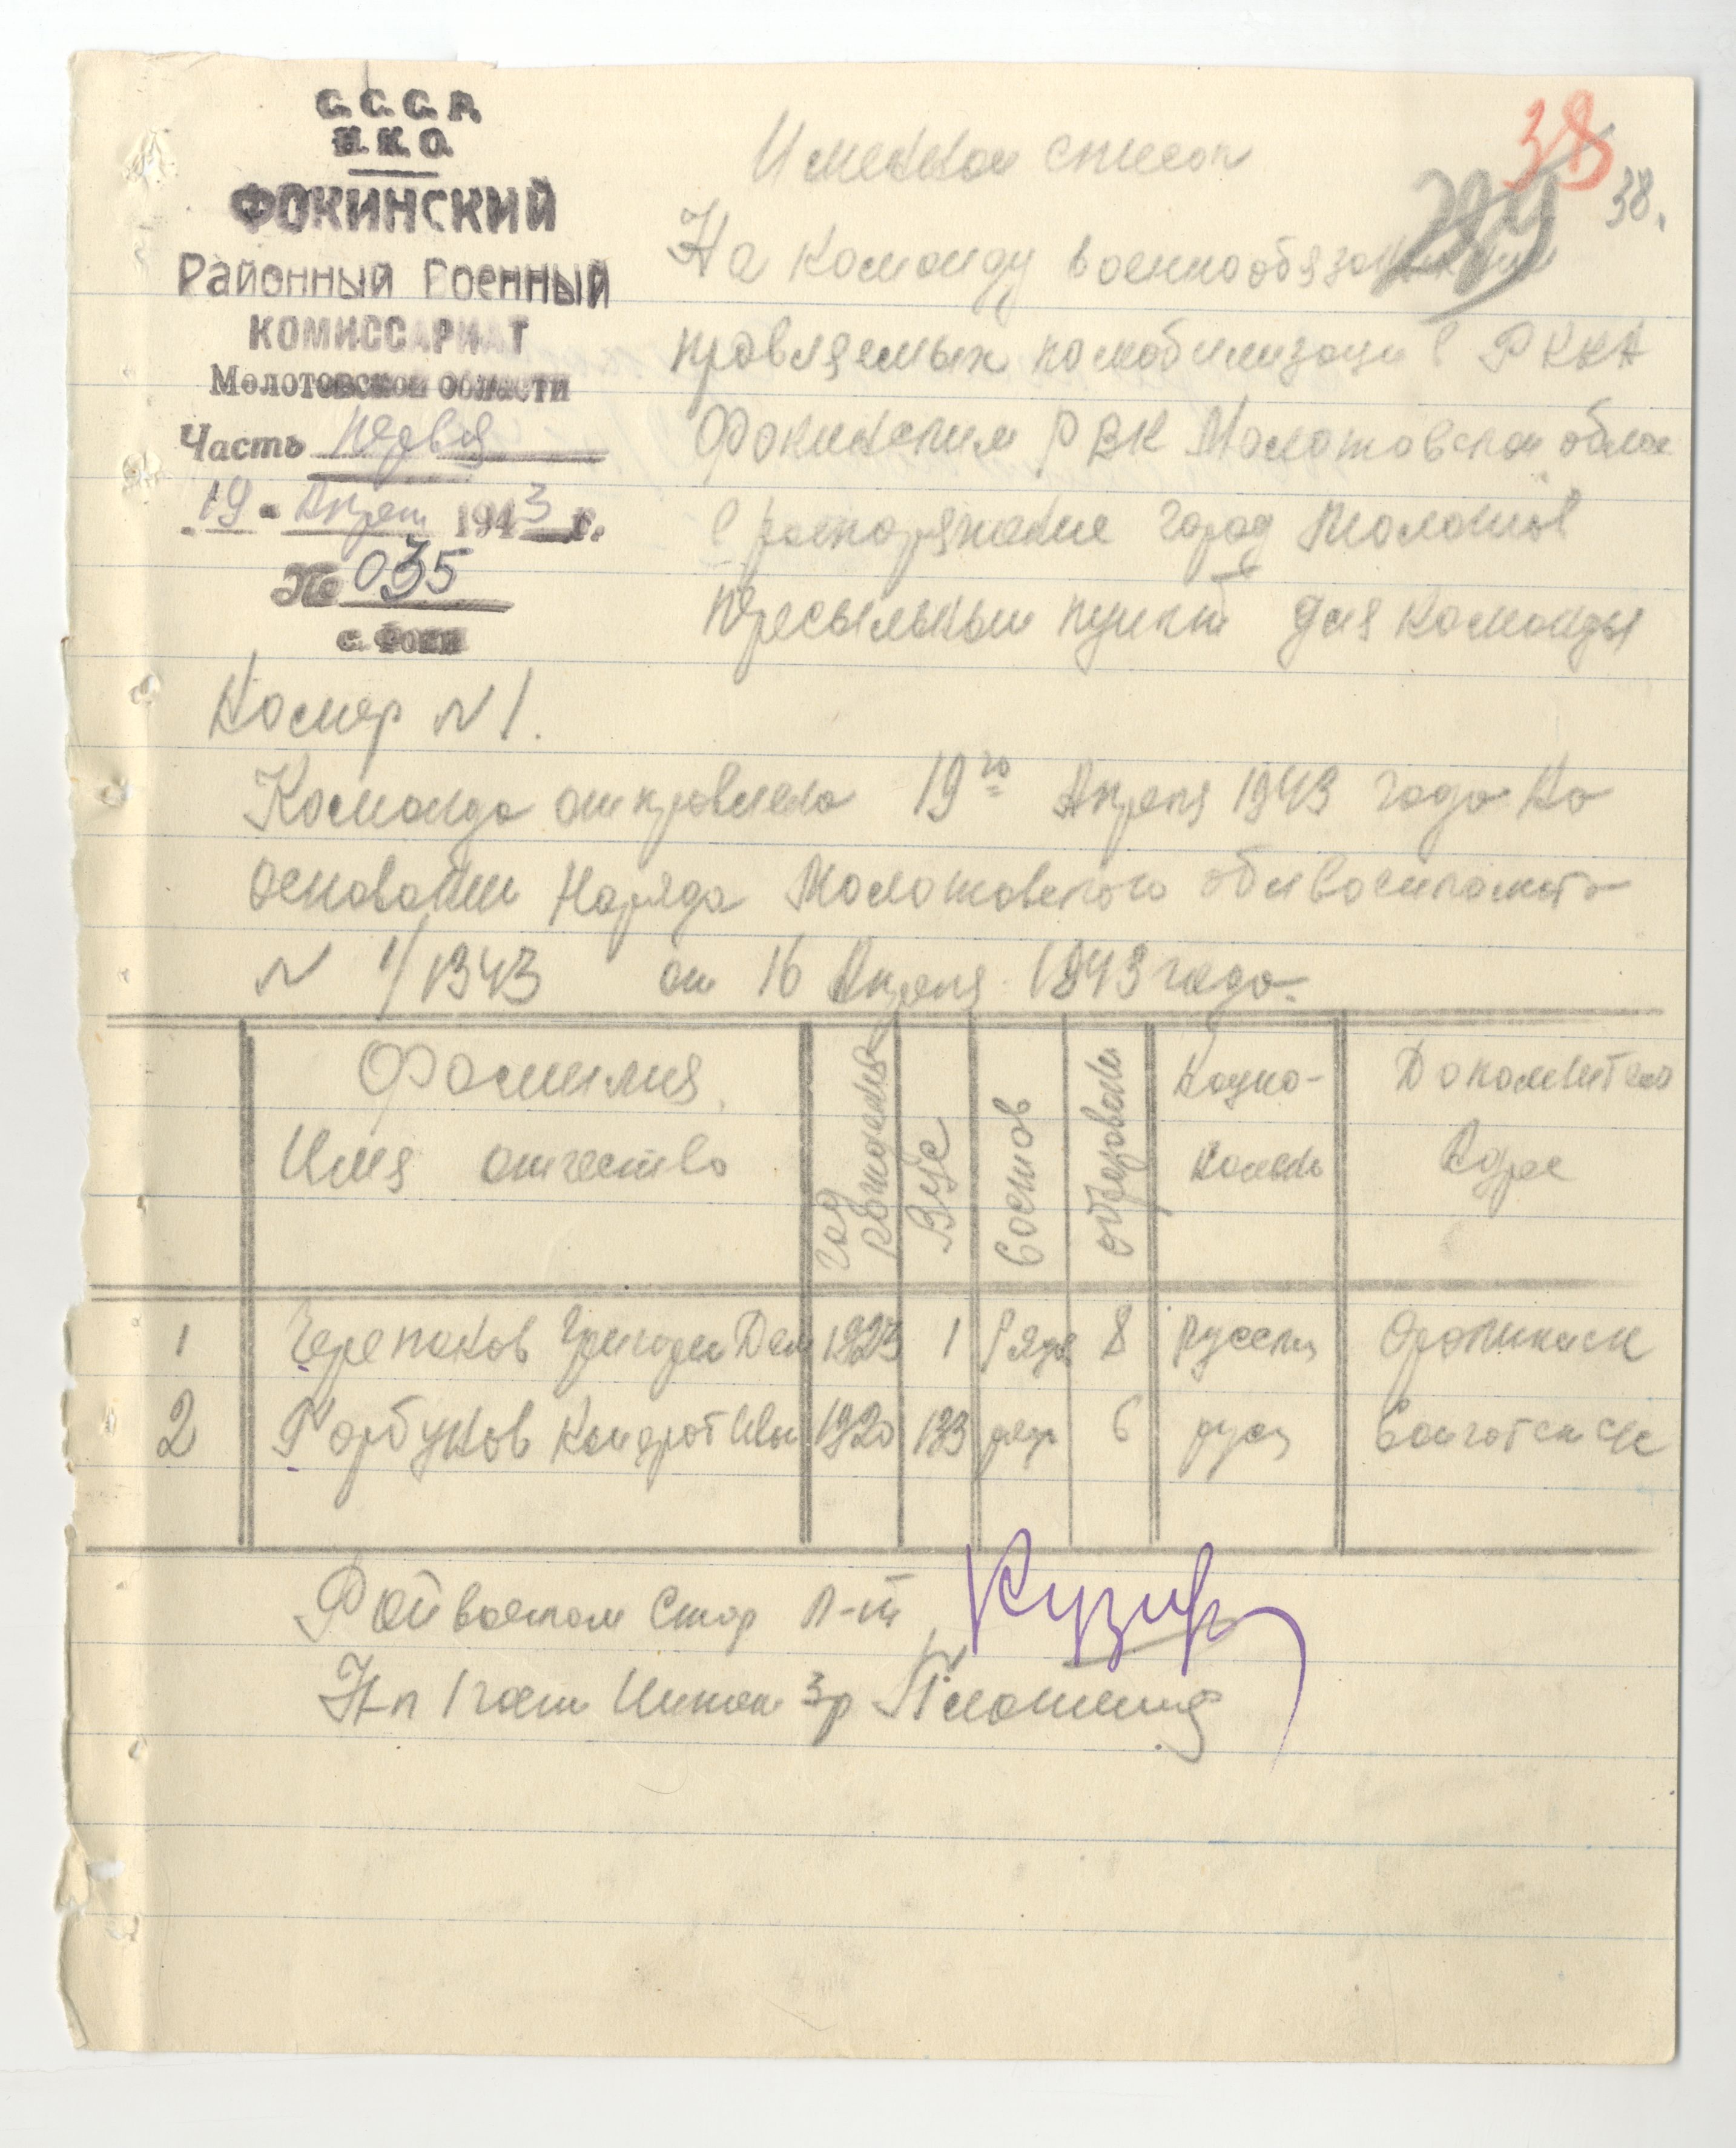 С.С.С.Р.
Н.К.О.
ФОКИНСКИЙ
Районный Военный
КОМИССАРИАТ
Молотовской области
Часть первая
"19" Апрел 1943 г.
№ 035
с. Фоки
38
38.
Именной список
На команду военнообязанных
правляемых по мобилизаци в РККА
Фокинским РВК Молотовской облас
в распоряжение город Молотов
пересыльный пункт для команды
Номер N 1.
Команда отправлена 19го Апреля 1943 года На
основании Наряда Молотовского облвоенкомата
N 1/1343 от 16 Апреля 1943 года.
Фамилия
Имя отчество
Год рождения
Вус
Состав
образован
Нацио-
нальн
Адрес
1 Черепанов Григорий Дем 1923 1 Рядо 8 Русский
2 Горбунов Кондрат Иван 1920 133 ряд 6 руск
Райвоенком Стар л-т
Нп 1 части